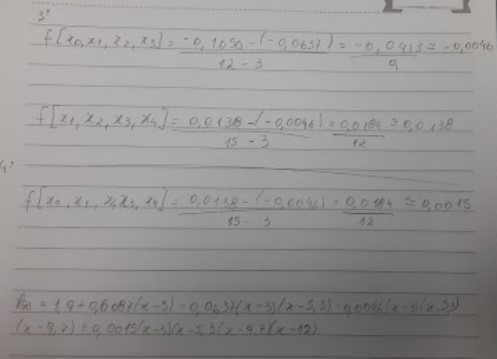 3º
f[x₀,x₁,x₂,x₃] = -0,1050 - (-0,0637) = -0,0413 ≅ -0,0046
12 - 3 9
f[x₁,x₂,x₃,x₄] = 0,0138 - (-0,0046) = 0,0184 ≅ 0,0138
15 - 3 12
4º
f[x₀,x₁,x₂,x₃,x₄] = 0,0138 - (-0,0046) = 0,0184 ≅ 0,0015
15 - 3 12
P(x) = 1,9 + 0,6087(x-3) - 0,0637(x-3)(x-5,3) - 0,0046(x-3)(x-5,3)
(x-9,7) + 0,0015(x-3)(x-5,3)(x-9,7)(x-12)